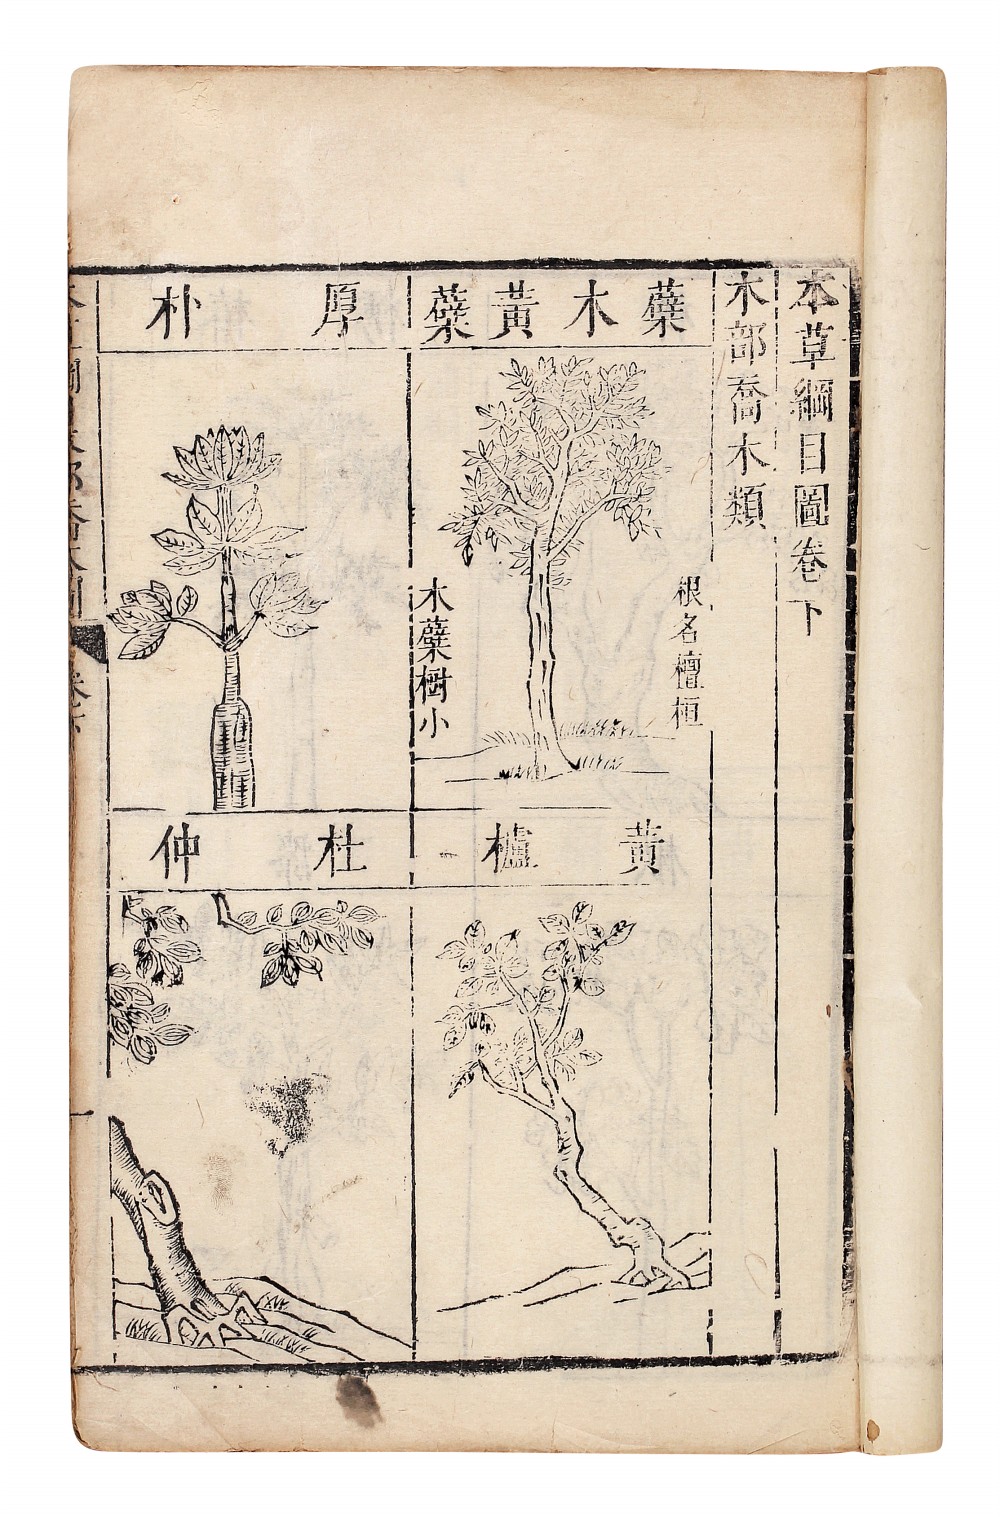 本草綱目圖卷下
木部喬木類
蘗木黃蘗
根名檀桓
木蘗樹小
厚朴
黃櫨
杜仲
卷下
一